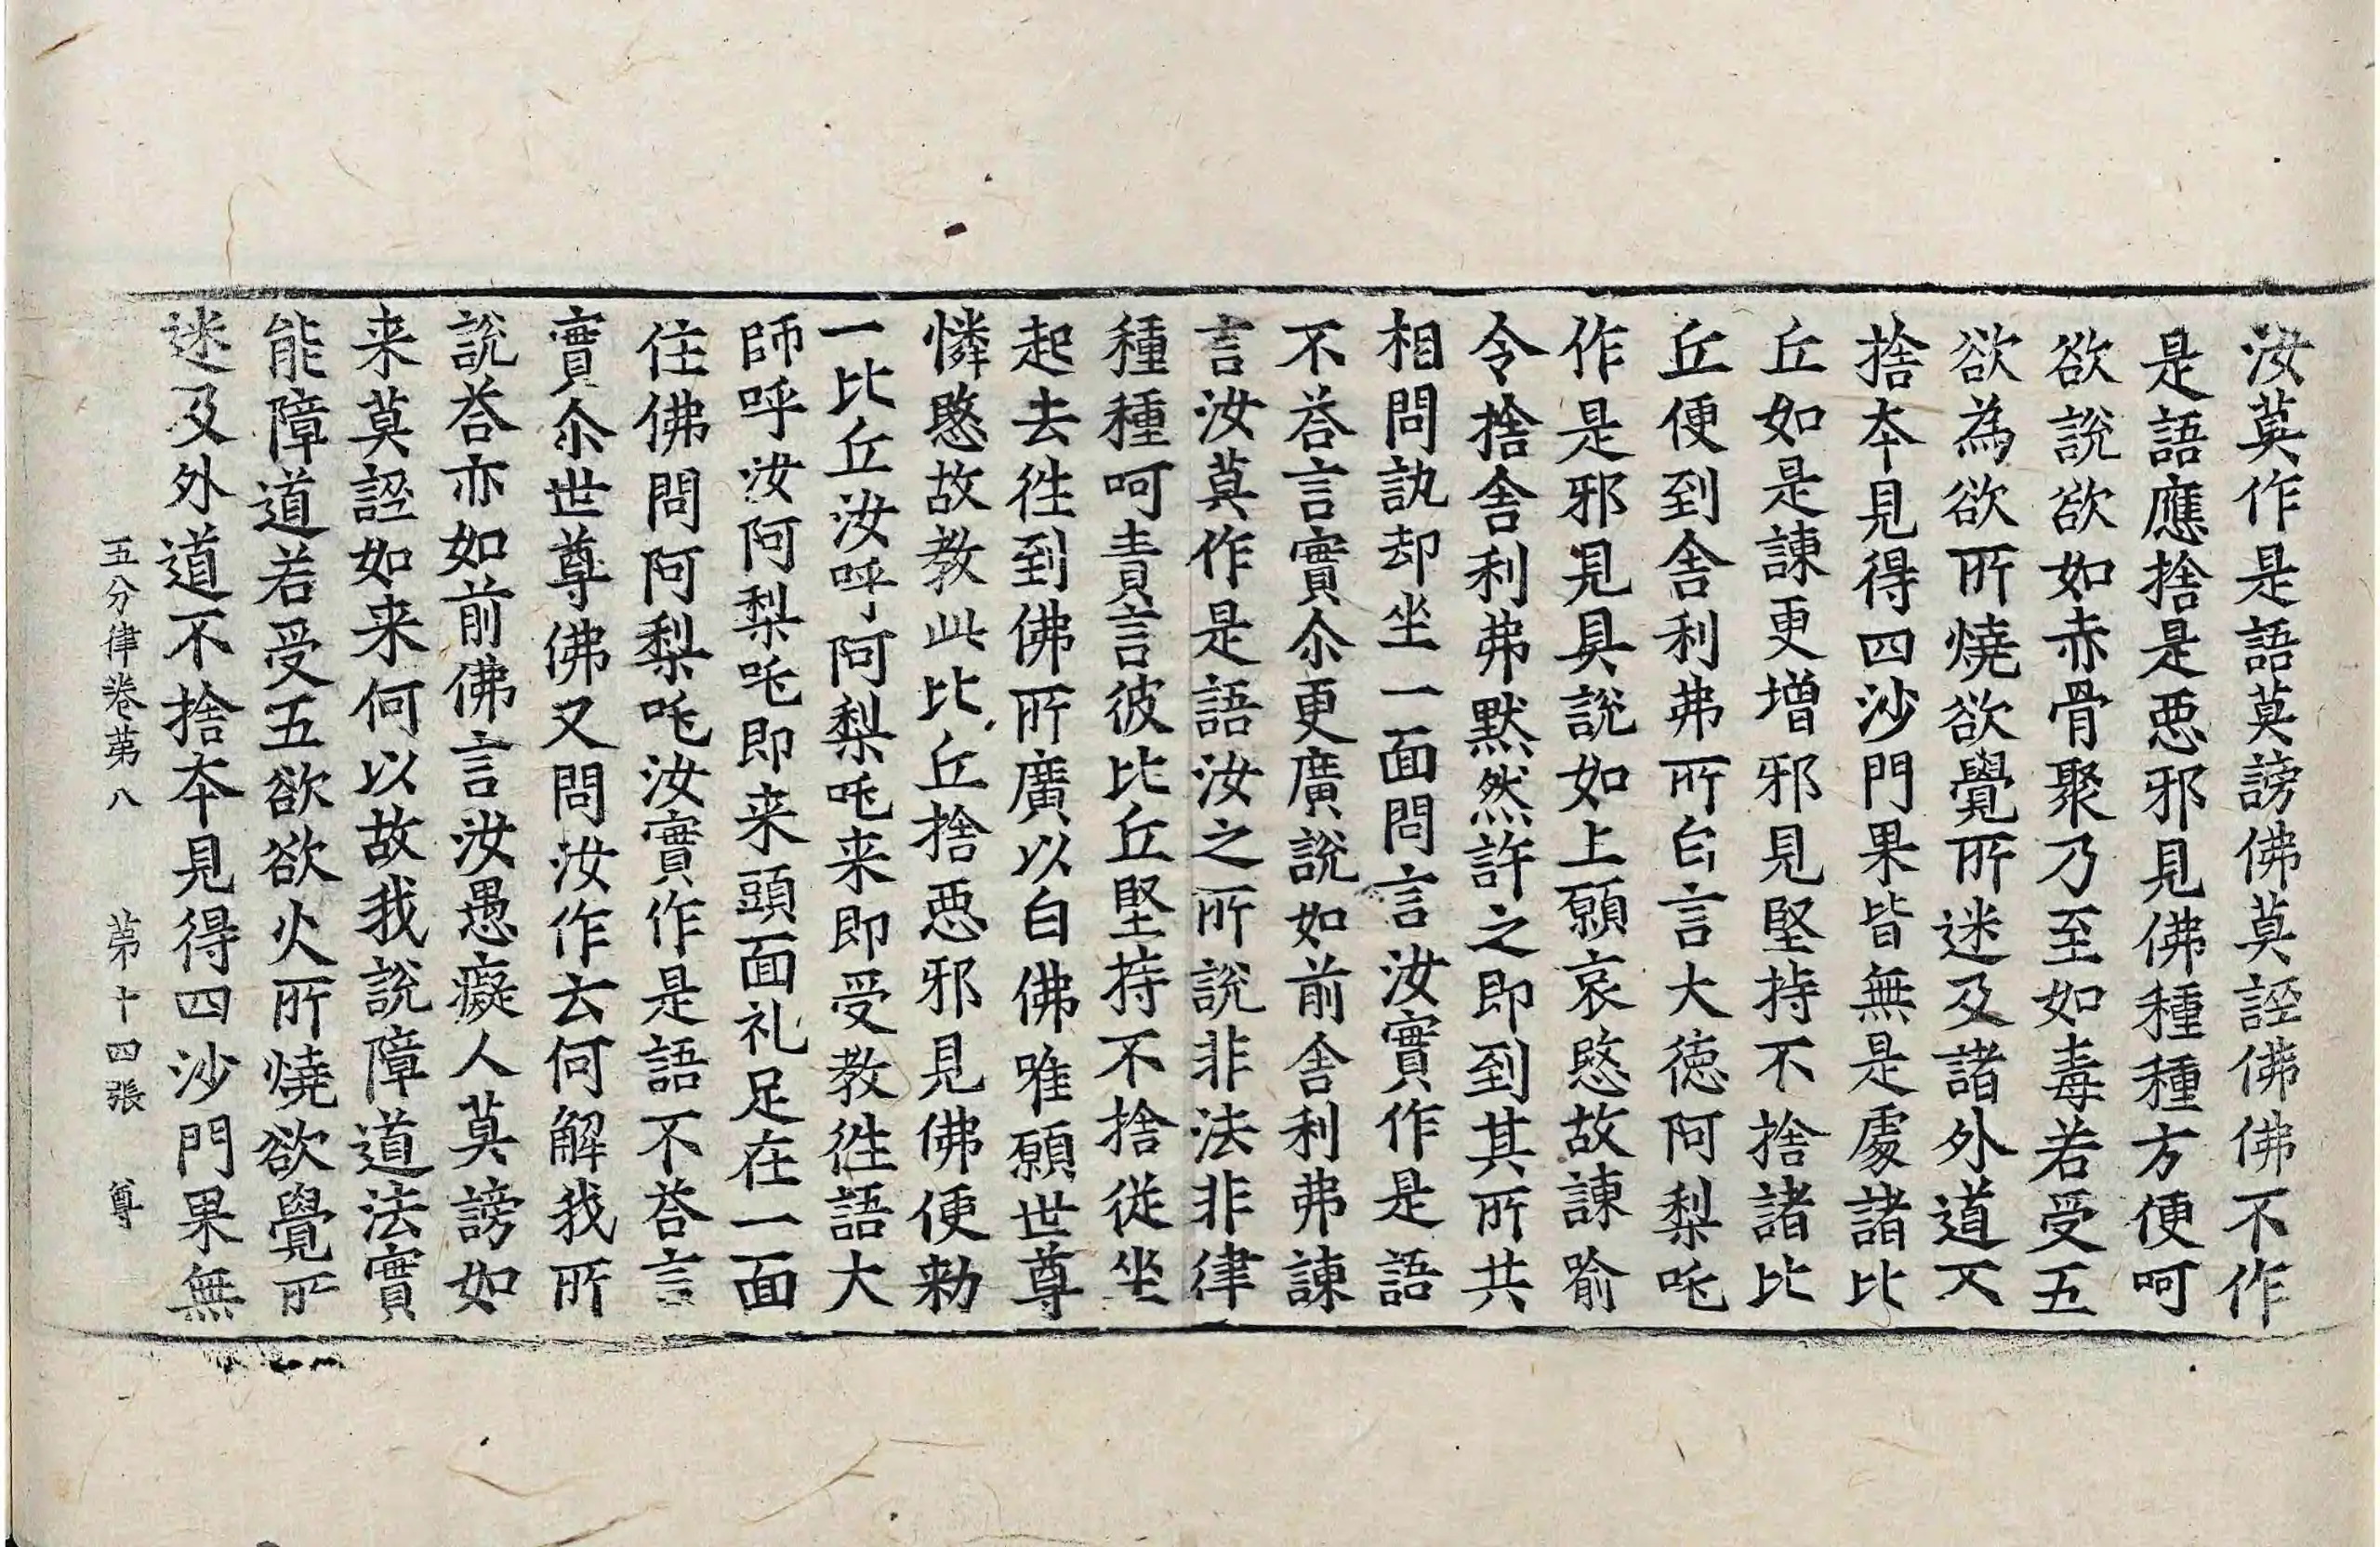 汝莫作是語莫謗佛莫誣佛佛不作
是語應捨是惡邪見佛種種方便呵
欲說欲如赤骨聚乃至如毒若受五
欲為欲所燒欲覺所迷及諸外道不
捨本見得四沙門果皆無是處諸比
丘如是諫更增邪見堅持不捨諸比
丘便到舍利弗所白言大德阿梨吒
作是邪見具說如上願哀愍故諫喻
令捨舍利弗默然許之即到其所共
相問訊却坐一面問言汝實作是語
不荅言實尒更廣說如前舍利弗諫
言汝莫作是語汝之所說非法非律
種種呵責言彼比丘堅持不捨從坐
起去徃到佛所廣以白佛唯願世尊
憐愍故教此比丘捨惡邪見佛便勑
一比丘汝呼阿梨吒来即受教徃語大
師呼汝阿梨吒即来頭面礼足在一面
住佛問阿梨吒汝實作是語不荅言
實尒世尊佛又問汝作云何解我所
說荅亦如前佛言汝愚癡人莫謗如
来莫誣如来何以故我說障道法實
能障道若受五欲欲火所燒欲覺所
迷及外道不捨本見得四沙門果無
五分律卷第八　第十四張　尊